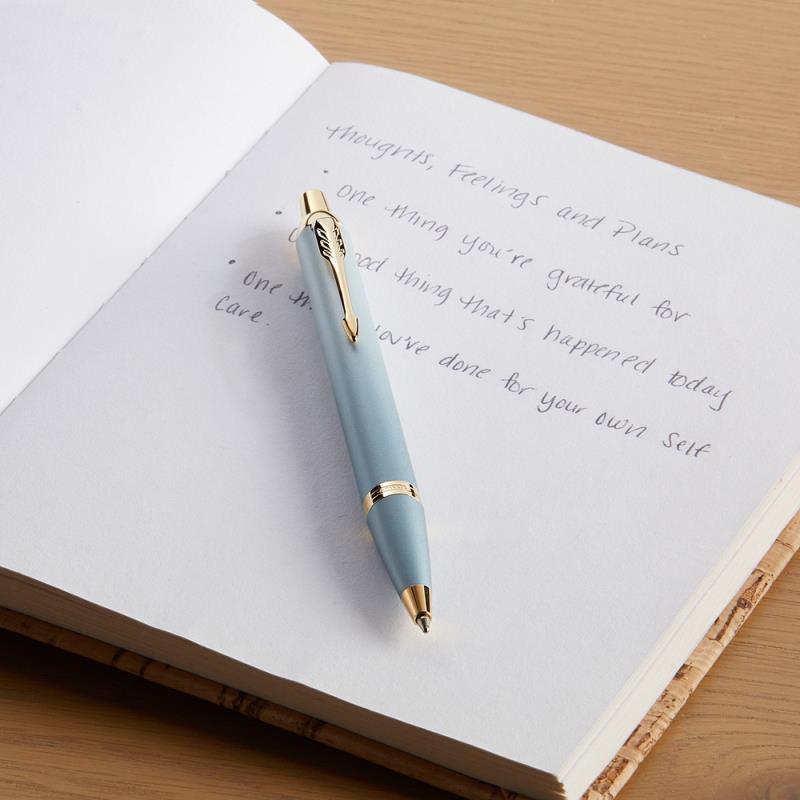 thoughts, Feelings and Plans
• One thing you're grateful for
• good thing that's happened today
• One you've done for your own self
care.